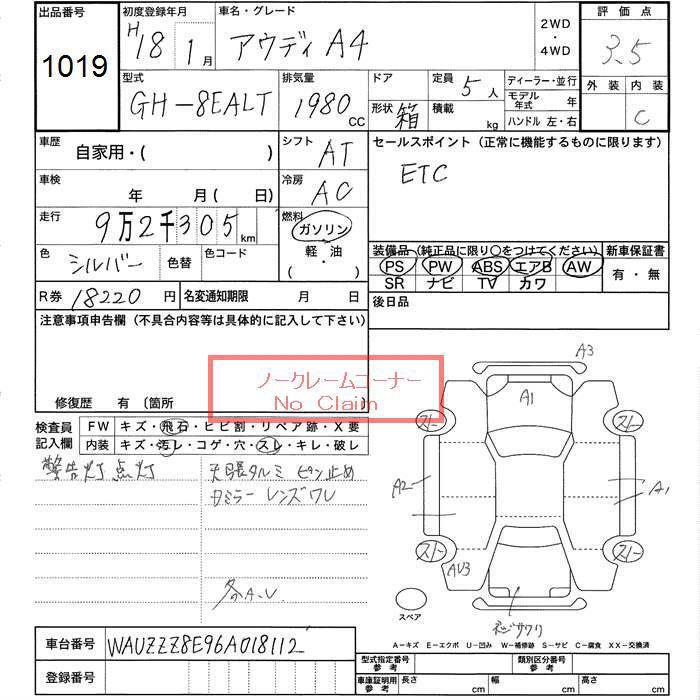 出品番号
1019
初度登録年月
H18 1月
車名・グレード
アウディ A4
2WD
・
4WD
評価点
3.5
型式
GH-8EALT
排気量
1980 CC
ドア
形状 箱
定員 5人
積載 kg
ディーラー・並行
モデル年式 年
ハンドル 左・右
外装 内装
C
車歴
自家用・( )
シフト AT
車検
年 月( 日)
冷房 AC
走行
9万2千305km
燃料
ガソリン
軽・油
( ・ )
色 シルバー 色替 色コード
R券 18220円 名変通知期限 月 日
セールスポイント(正常に機能するものに限ります)
ETC
装備品(純正品に限り○をつけてください) 新車保証書
PS PW ABS エアB AW
SR ナビ TV カワ
有・無
後日品
注意事項申告欄(不具合内容等は具体的に記入して下さい)
ノークレームコーナー
No Claim
修復歴 有 〔箇所
検査員記入欄
FW キズ・飛石・ヒビ割・リペア跡・X要
内装 キズ・汚レ・コゲ・穴・スレ・キレ・破レ
警告灯点灯
天張タルミ ピン止め
カミラー レンズワレ
各A.U.
A3
A1
スト スト
A2
A1
スト スト
AU3
スペア
ネジサワリ
A-キズ E-エクボ U-凹み W-補修跡 S-サビ C-腐食 XX-交換済
車台番号 WAUZZZ8E96A018112
登録番号
型式指定番号 参考
類別区分番号 参考
車庫証明用 参考 長さ cm 幅 cm 高さ cm